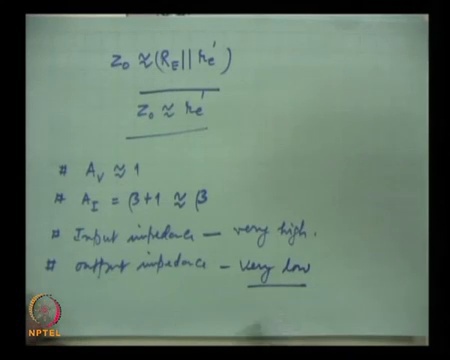 Z₀ ≈ (R_E || r_e')
Z₀ ≈ r_e'
# A_V ≈ 1
# A_I = β+1 ≈ β
# Input impedance — very high.
# output impedance – very low
NPTEL